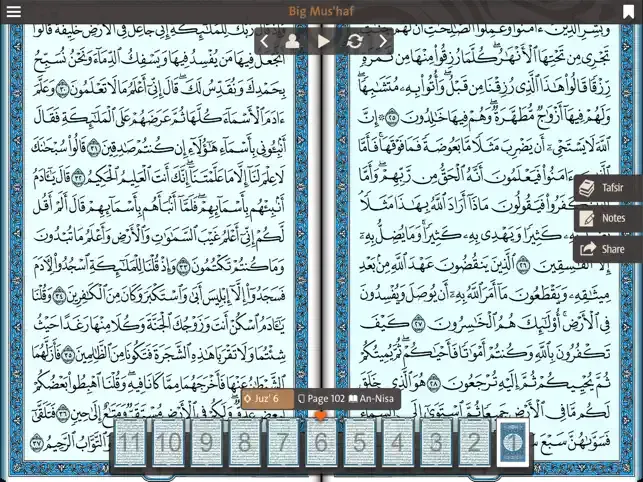 Big Mus'haf
وَبَشِّرِ ٱلَّذِينَ ءَامَنُوا۟ وَعَمِلُوا۟ ٱلصَّٰلِحَٰتِ أَنَّ
تَجْرِى مِن تَحْتِهَا ٱلْأَنْهَٰرُ كُلَّمَا رُزِقُوا۟ مِنْهَا مِن ثَمَرَةٍ
رِّزْقًا قَالُوا۟ هَٰذَا ٱلَّذِى رُزِقْنَا مِن قَبْلُ وَأُتُوا۟ بِهِۦ مُتَشَٰبِهًا
وَلَهُمْ فِيهَآ أَزْوَٰجٌ مُّطَهَّرَةٌ وَهُمْ فِيهَا خَٰلِدُونَ ٢٥ ۞ إِنَّ
ٱللَّهَ لَا يَسْتَحْىِۦٓ أَن يَضْرِبَ مَثَلًا مَّا بَعُوضَةً فَمَا فَوْقَهَا فَأَمَّا
ءَامَنُوا۟ فَيَعْلَمُونَ أَنَّهُ ٱلْحَقُّ مِن رَّبِّهِمْ وَأَمَّا
كَفَرُوا۟ فَيَقُولُونَ مَاذَآ أَرَادَ ٱللَّهُ بِهَٰذَا مَثَلًا
كَثِيرًا وَيَهْدِى بِهِۦ كَثِيرًا وَمَا يُضِلُّ بِهِۦٓ
إِلَّا ٱلْفَٰسِقِينَ ٢٦ ٱلَّذِينَ يَنقُضُونَ عَهْدَ ٱللَّهِ مِنۢ بَعْدِ
مِيثَٰقِهِۦ وَيَقْطَعُونَ مَآ أَمَرَ ٱللَّهُ بِهِۦٓ أَن يُوصَلَ وَيُفْسِدُونَ
فِى ٱلْأَرْضِ أُو۟لَٰٓئِكَ هُمُ ٱلْخَٰسِرُونَ ٢٧ كَيْفَ
تَكْفُرُونَ بِٱللَّهِ وَكُنتُمْ أَمْوَٰتًا فَأَحْيَٰكُمْ ثُمَّ يُمِيتُكُمْ
ثُمَّ يُحْيِيكُمْ ثُمَّ إِلَيْهِ تُرْجَعُونَ ٢٨ هُوَ ٱلَّذِى خَلَقَ
لَكُم مَّا فِى ٱلْأَرْضِ جَمِيعًا ثُمَّ ٱسْتَوَىٰٓ إِلَى ٱلسَّمَآءِ
فَسَوَّىٰهُنَّ سَبْعَ
وَإِذْ قَالَ رَبُّكَ لِلْمَلَٰٓئِكَةِ إِنِّى جَاعِلٌ فِى ٱلْأَرْضِ خَلِيفَةً قَالُوٓا۟
أَتَجْعَلُ فِيهَا مَن يُفْسِدُ فِيهَا وَيَسْفِكُ ٱلدِّمَآءَ وَنَحْنُ نُسَبِّحُ
بِحَمْدِكَ وَنُقَدِّسُ لَكَ قَالَ إِنِّىٓ أَعْلَمُ مَا لَا تَعْلَمُونَ ٣٠ وَعَلَّمَ
ءَادَمَ ٱلْأَسْمَآءَ كُلَّهَا ثُمَّ عَرَضَهُمْ عَلَى ٱلْمَلَٰٓئِكَةِ فَقَالَ
أَنۢبِـُٔونِى بِأَسْمَآءِ هَٰٓؤُلَآءِ إِن كُنتُمْ صَٰدِقِينَ ٣١ قَالُوا۟ سُبْحَٰنَكَ
لَا عِلْمَ لَنَآ إِلَّا مَا عَلَّمْتَنَآ إِنَّكَ أَنتَ ٱلْعَلِيمُ ٱلْحَكِيمُ ٣٢ قَالَ يَٰٓـَٔادَمُ
أَنۢبِئْهُم بِأَسْمَآئِهِمْ فَلَمَّآ أَنۢبَأَهُم بِأَسْمَآئِهِمْ قَالَ أَلَمْ أَقُل
لَّكُمْ إِنِّىٓ أَعْلَمُ غَيْبَ ٱلسَّمَٰوَٰتِ وَٱلْأَرْضِ وَأَعْلَمُ مَا تُبْدُونَ
وَمَا كُنتُمْ تَكْتُمُونَ ٣٣ وَإِذْ قُلْنَا لِلْمَلَٰٓئِكَةِ ٱسْجُدُوا۟ لِءَادَمَ
فَسَجَدُوٓا۟ إِلَّآ إِبْلِيسَ أَبَىٰ وَٱسْتَكْبَرَ وَكَانَ مِنَ ٱلْكَٰفِرِينَ ٣٤ وَقُلْنَا
يَٰٓـَٔادَمُ ٱسْكُنْ أَنتَ وَزَوْجُكَ ٱلْجَنَّةَ وَكُلَا مِنْهَا رَغَدًا حَيْثُ
شِئْتُمَا وَلَا تَقْرَبَا هَٰذِهِ ٱلشَّجَرَةَ فَتَكُونَا مِنَ ٱلظَّٰلِمِينَ ٣٥ فَأَزَلَّهُمَا
ٱلشَّيْطَٰنُ عَنْهَا فَأَخْرَجَهُمَا مِمَّا كَانَا فِيهِ وَقُلْنَا ٱهْبِطُوا۟ بَعْضُكُمْ
لِبَعْضٍ عَدُوٌّ وَلَكُمْ فِى ٱلْأَرْضِ مُسْتَقَرٌّ وَمَتَٰعٌ إِلَىٰ حِينٍ ٣٦ فَتَلَقَّىٰٓ
ٱلتَّوَّابُ ٱلرَّحِيمُ ٣٧
Tafsir
Notes
Share
Juz' 6 Page 102 An-Nisa
11 10 9 8 7 6 5 4 3 2 1